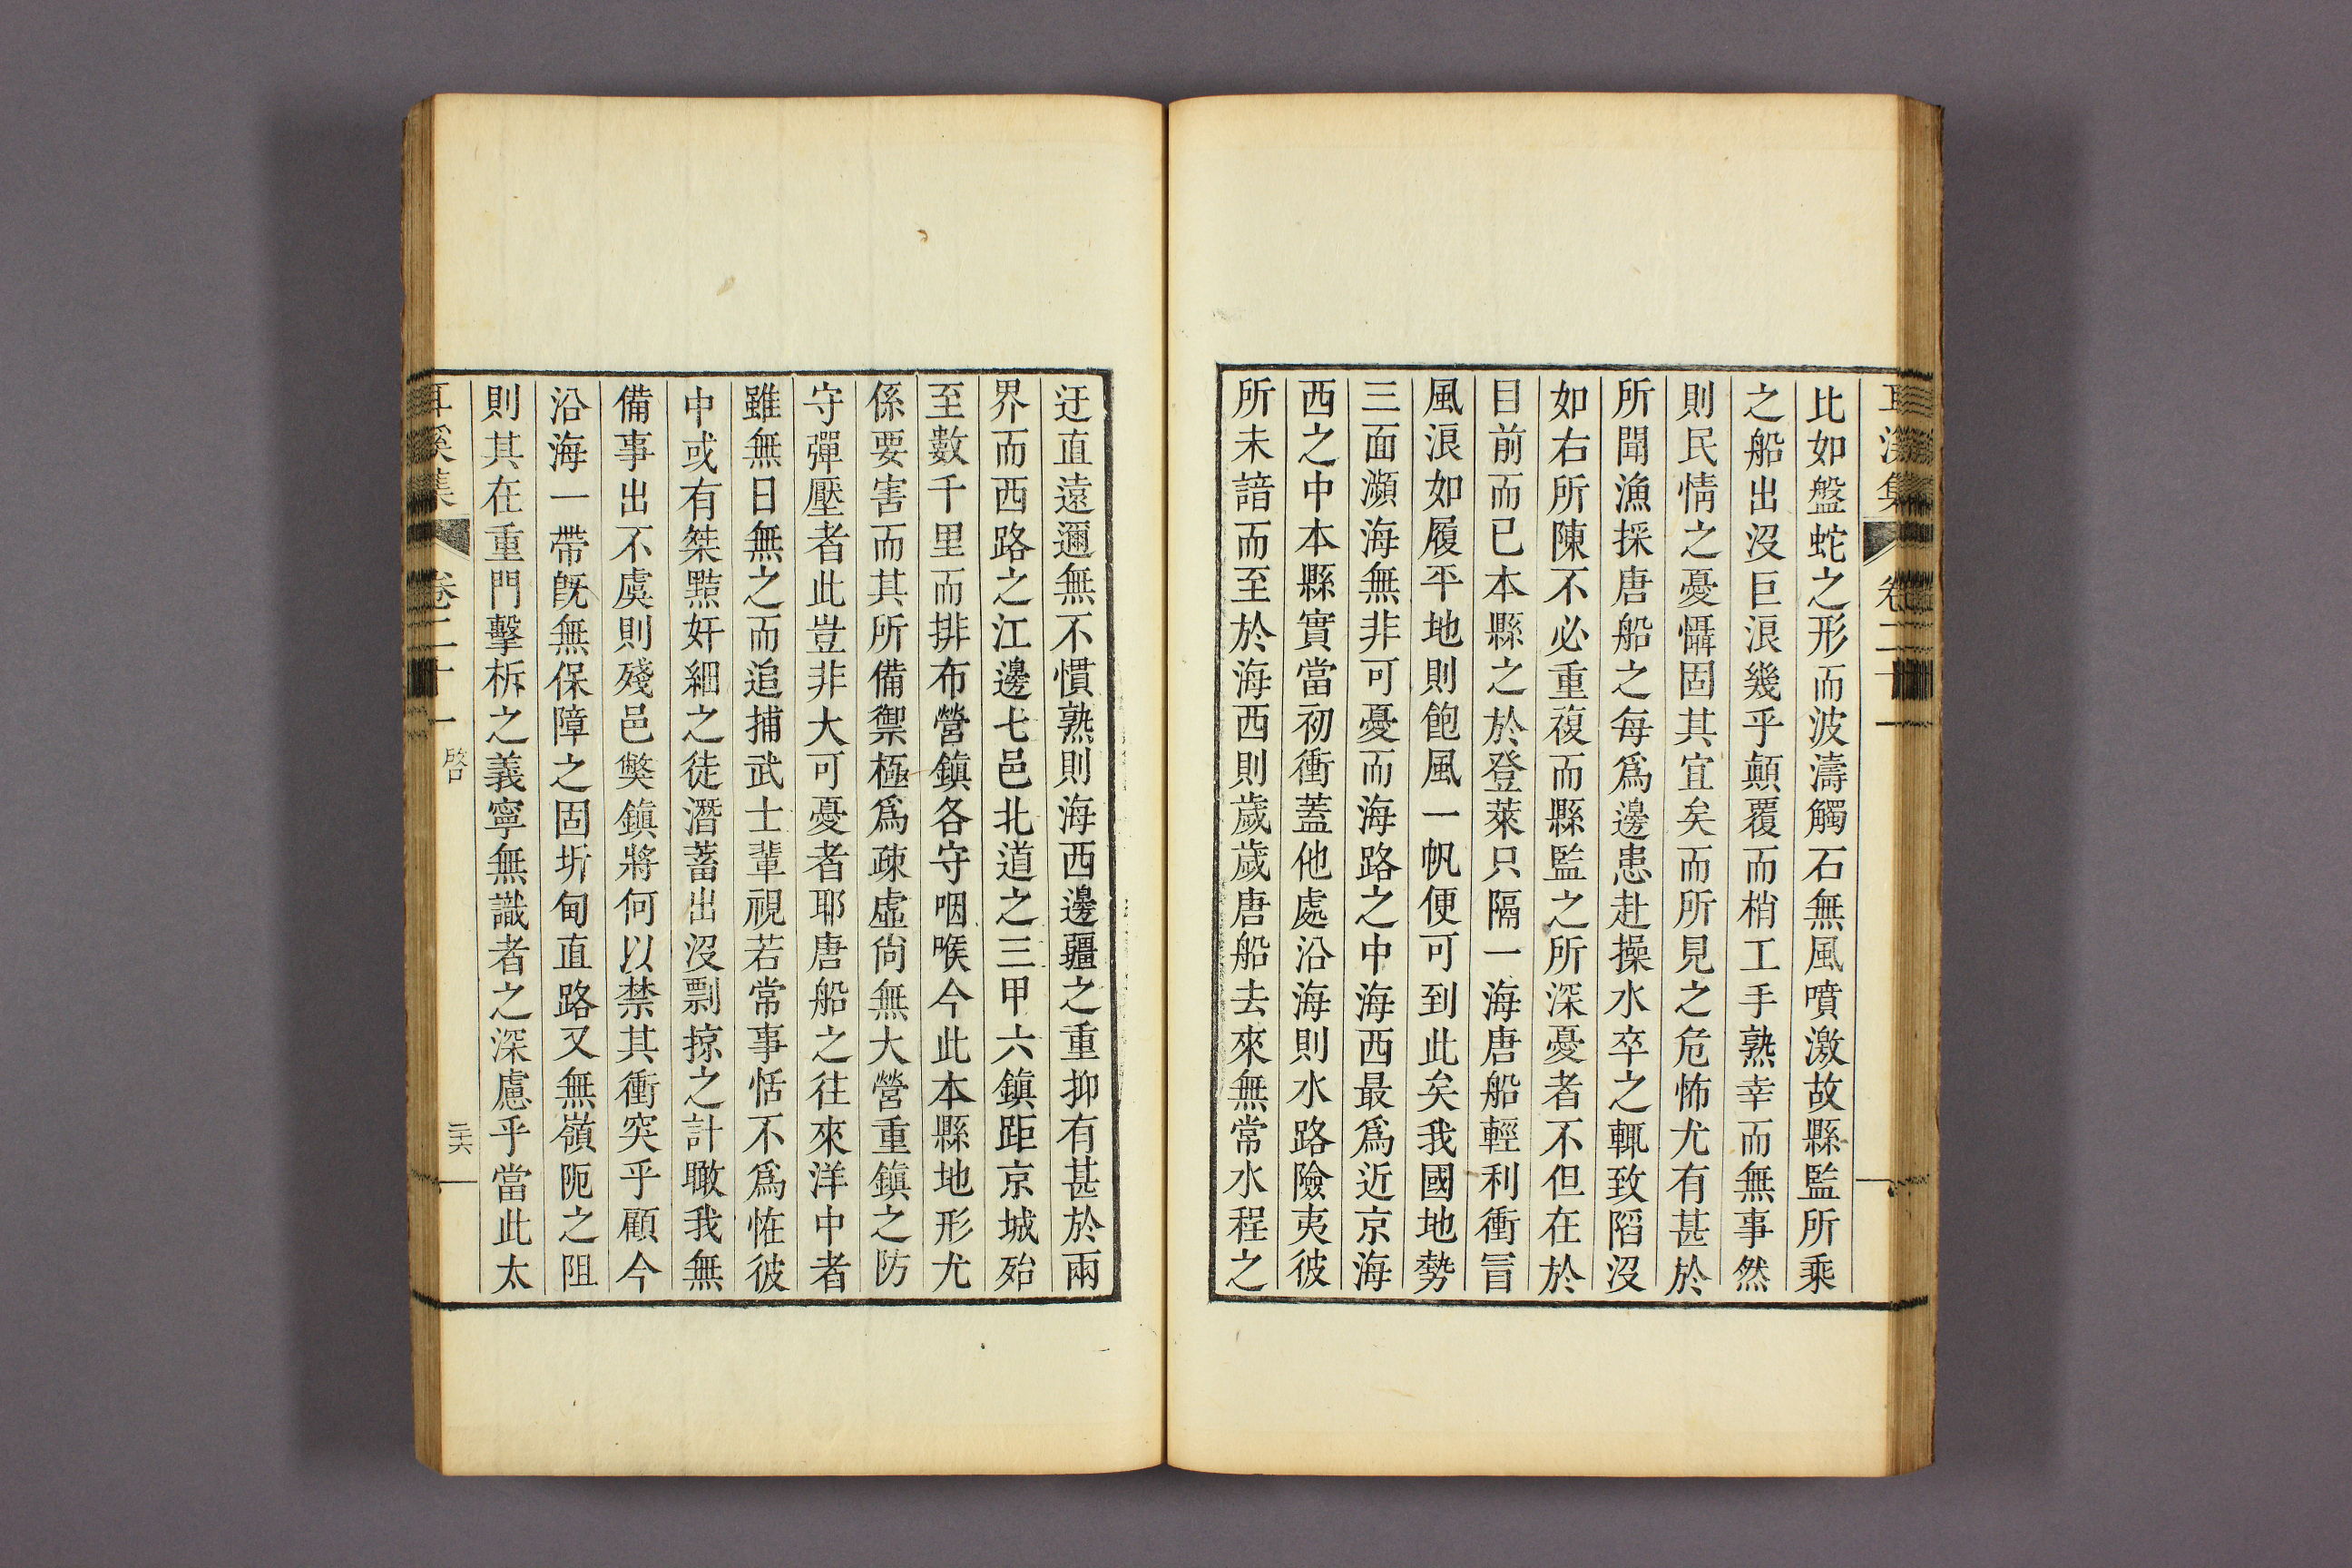 耳溪集 卷二十一
比如盤蛇之形而波濤觸石無風噴激故縣監所乘
之船出沒巨浪幾乎顚覆而梢工手熟幸而無事然
則民情之憂懾固其宜矣而所見之危怖尤有甚於
所聞漁採唐船之每爲邊患赴操水卒之輒致陷沒
如右所陳不必重複而縣監之所深憂者不但在於
目前而已本縣之於登萊只隔一海唐船輕利衝冒
風浪如履平地則飽風一帆便可到此矣我國地勢
三面瀕海無非可憂而海路之中海西最爲近京海
西之中本縣實當初衝蓋他處沿海則水路險夷彼
所未諳而至於海西則歲歲唐船去來無常水程之
迂直遠邇無不慣熟則海西邊疆之重抑有甚於兩
界而西路之江邊七邑北道之三甲六鎭距京城殆
至數千里而排布營鎭各守咽喉今此本縣地形尤
係要害而其所備禦極爲疎虛尙無大營重鎭之防
守彈壓者此豈非大可憂者耶唐船之往來洋中者
雖無日無之而追捕武士輩視若常事恬不爲恠彼
中或有桀黠奸細之徒潛蓄出沒剽掠之計瞰我無
備事出不虞則殘邑獘鎭將何以禁其衝突乎顧今
沿海一帶旣無保障之固圻甸直路又無嶺阨之阻
則其在重門擊柝之義寧無識者之深慮乎當此太
耳溪集 卷二十一 啓 三六